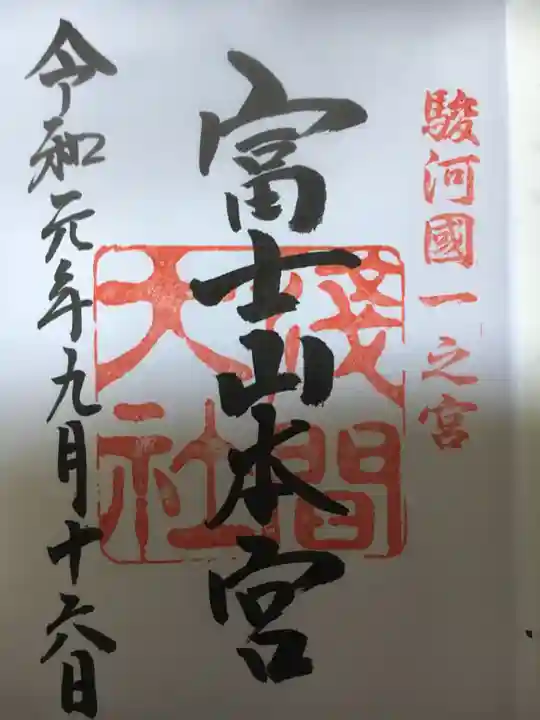 駿河國一之宮
富士山本宮
淺間
大社
令和元年九月十六日